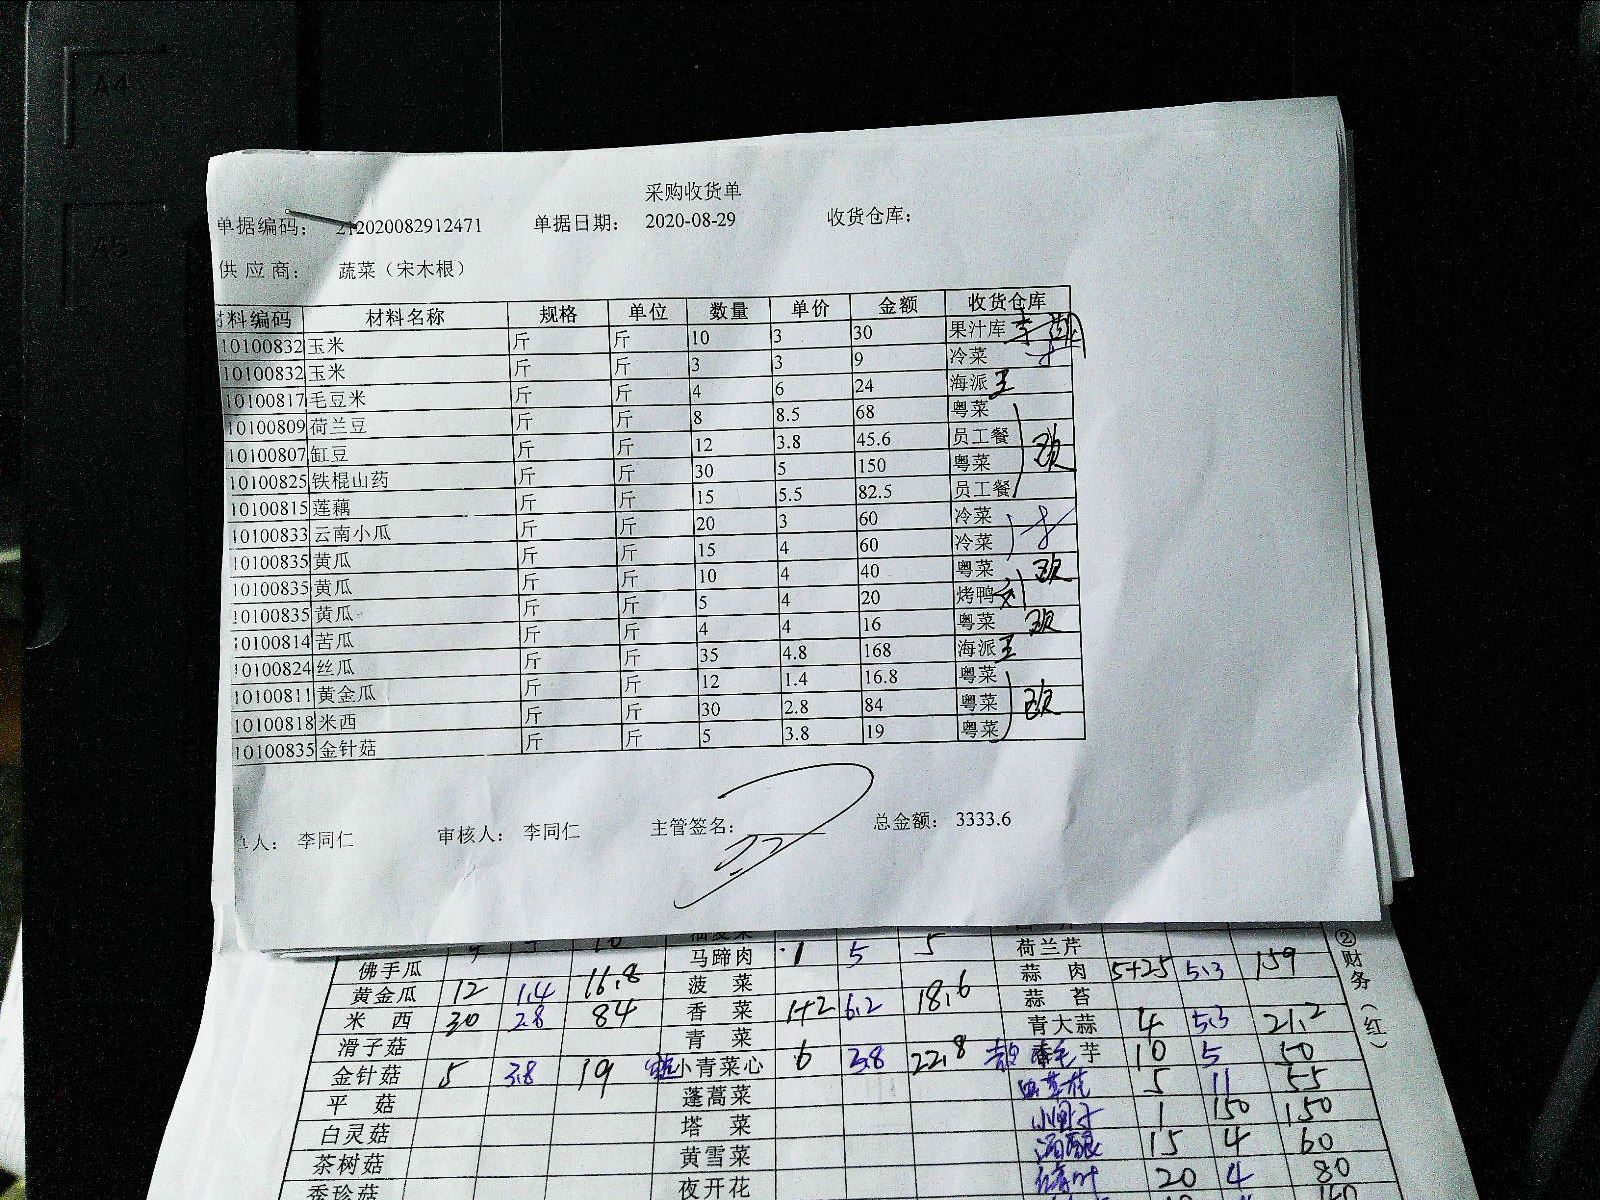 A4
A5
采购收货单
单据编码： 212020082912471 单据日期： 2020-08-29 收货仓库：
供应商： 蔬菜（宋木根）
材料编码 材料名称 规格 单位 数量 单价 金额 收货仓库
10100832 玉米 斤 斤 10 3 30 果汁库
10100832 玉米 斤 斤 3 3 9 冷菜
10100817 毛豆米 斤 斤 4 6 24 海派 王
10100809 荷兰豆 斤 斤 8 8.5 68 粤菜
10100807 缸豆 斤 斤 12 3.8 45.6 员工餐
10100825 铁棍山药 斤 斤 30 5 150 粤菜
10100815 莲藕 斤 斤 15 5.5 82.5 员工餐
10100833 云南小瓜 斤 斤 20 3 60 冷菜
10100835 黄瓜 斤 斤 15 4 60 冷菜
10100835 黄瓜 斤 斤 10 4 40 粤菜
10100835 黄瓜 斤 斤 5 4 20 烤鸭
10100814 苦瓜 斤 斤 4 4 16 粤菜
10100824 丝瓜 斤 斤 35 4.8 168 海派 王
10100811 黄金瓜 斤 斤 12 1.4 16.8 粤菜
10100818 米西 斤 斤 30 2.8 84 粤菜
10100835 金针菇 斤 斤 5 3.8 19 粤菜
人： 李同仁 审核人： 李同仁 主管签名： 总金额： 3333.6
佛手瓜 马蹄肉 1 5 5 荷兰芹
黄金瓜 12 1.4 16.8 菠菜 蒜肉 5+25 5.3 159
米西 30 2.8 84 香菜 1+2 6.2 18.6 蒜苔
滑子菇 青菜 青大蒜 4 5.3 21.2
金针菇 5 3.8 19 小青菜心 6 3.8 22.8 芋 10 5 50
平菇 蓬蒿菜 5 11 55
白灵菇 塔菜 1 150 150
茶树菇 黄雪菜 15 4 60
秀珍菇 夜开花 20 4 80
②财务（红）